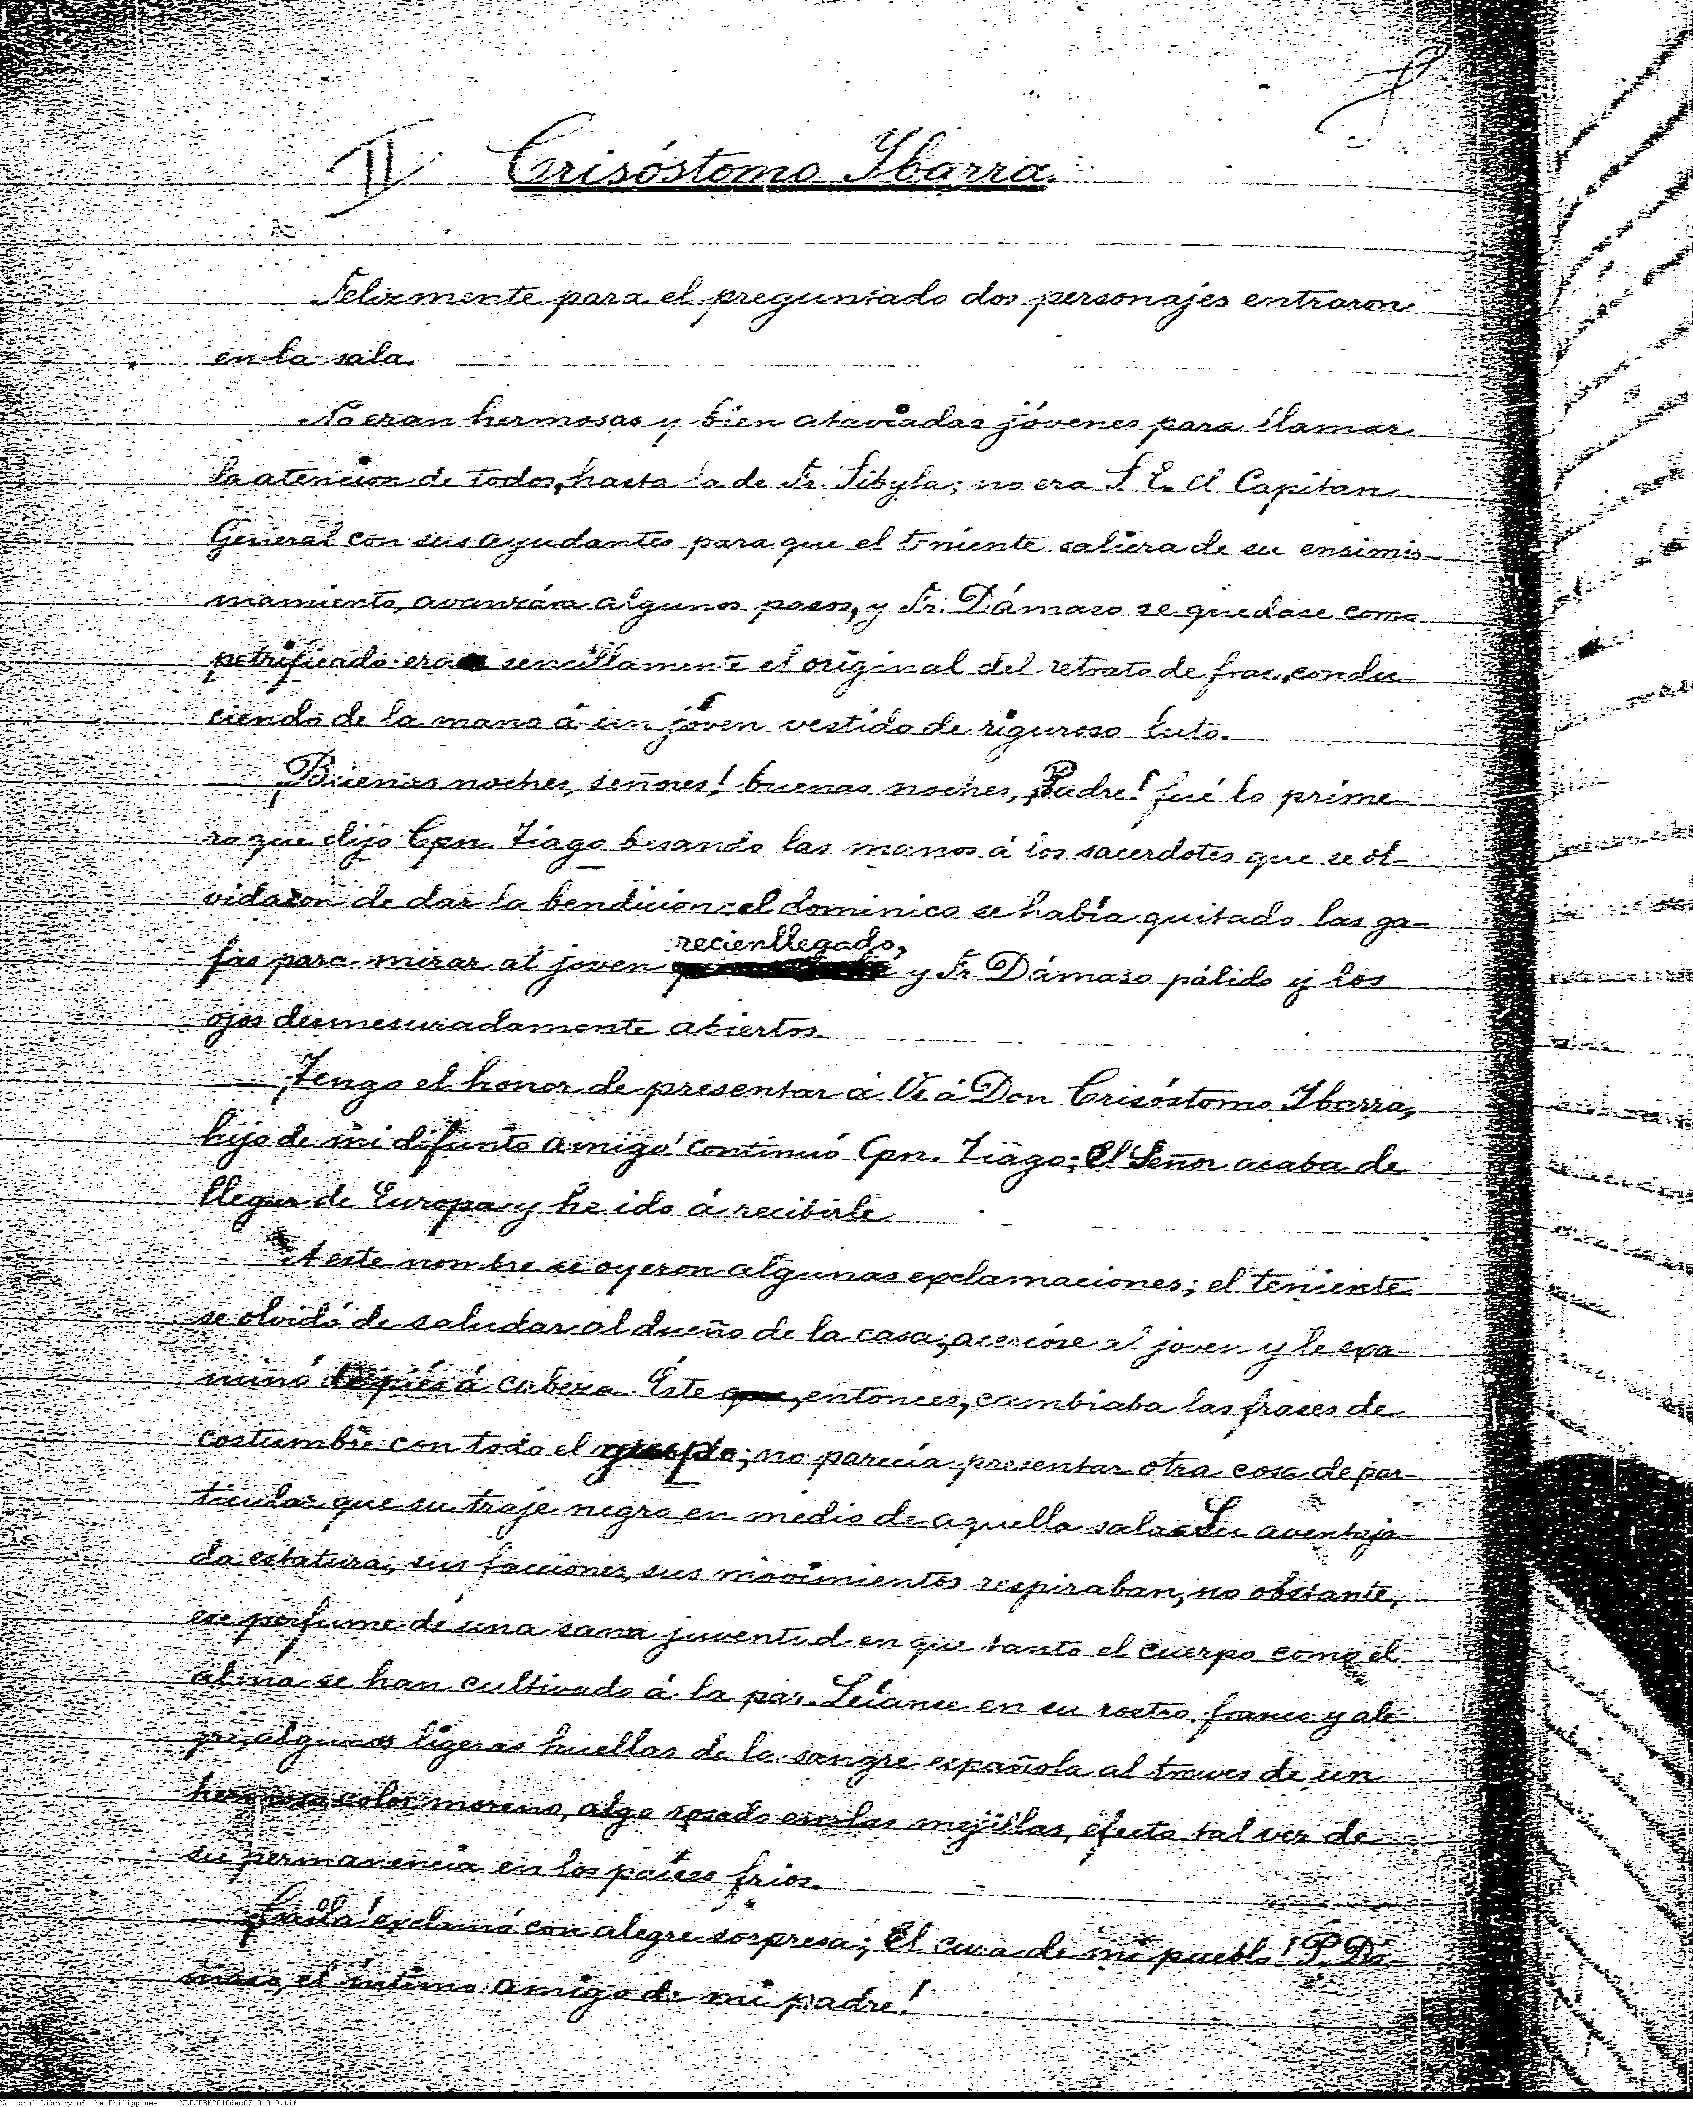 II Crisóstomo Ibarra.
Felizmente para el preguntado dos personajes entraron
en la sala.
No eran hermosas y bien ataviadas jóvenes para llamar
la atencion de todos, hasta la de Fr. Sibyla; no era S. E. el Capitan
General con sus ayudantes para que el teniente saliera de su ensimis-
mamiento, avanzára algunos pasos, y Fr. Dámaso se quedase como
petrificado: era sencillamente el original del retrato de frac, condu-
ciendo de la mano á un jóven vestido de riguroso luto.
Buenas noches, señores! buenas noches, Padre! fué lo prime-
ro que dijo Cpn. Tiago besando las manos á los sacerdotes que se ol-
vidaron de dar la bendicion: el dominico se había quitado las ga-
fas para mirar al joven recienllegado, y Fr. Dámaso pálido y los
ojos desmesuradamente abiertos.
Tengo el honor de presentar á Vs á Don Crisóstomo Ibarra,
hijo de mi difunto amigo! continuó Cpn. Tiago; El Señor acaba de
llegar de Europa y he ido á recibirle.
A este nombre se oyeron algunas exclamaciones; el teniente
se olvidó de saludar al dueño de la casa; acercóse al joven y le exa
minó de piés á cabeza. Éste, entonces, cambiaba las frases de
costumbre con todo el grupo; no parecía presentar otra cosa de par-
ticular que su traje negro en medio de aquella sala. Su aventaja-
da estatura, sus facciones, sus movimientos respiraban, no obstante,
ese perfume de una sana juventud en que tanto el cuerpo como el
alma se han cultivado á la par. Leíanse en su rostro, franco y ale
gre, algunas ligeras huellas de la sangre española al traves de un
hermoso color moreno, algo rosado en las mejillas, efecto tal vez de
su permanencia en los países frios.
Calla! exclamó con alegre sorpresa; El cura de mi pueblo! P. Dá-
maso, el íntimo amigo de mi padre!